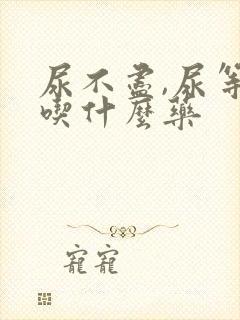 尿不盡,尿等
喫什麼藥
寵寵